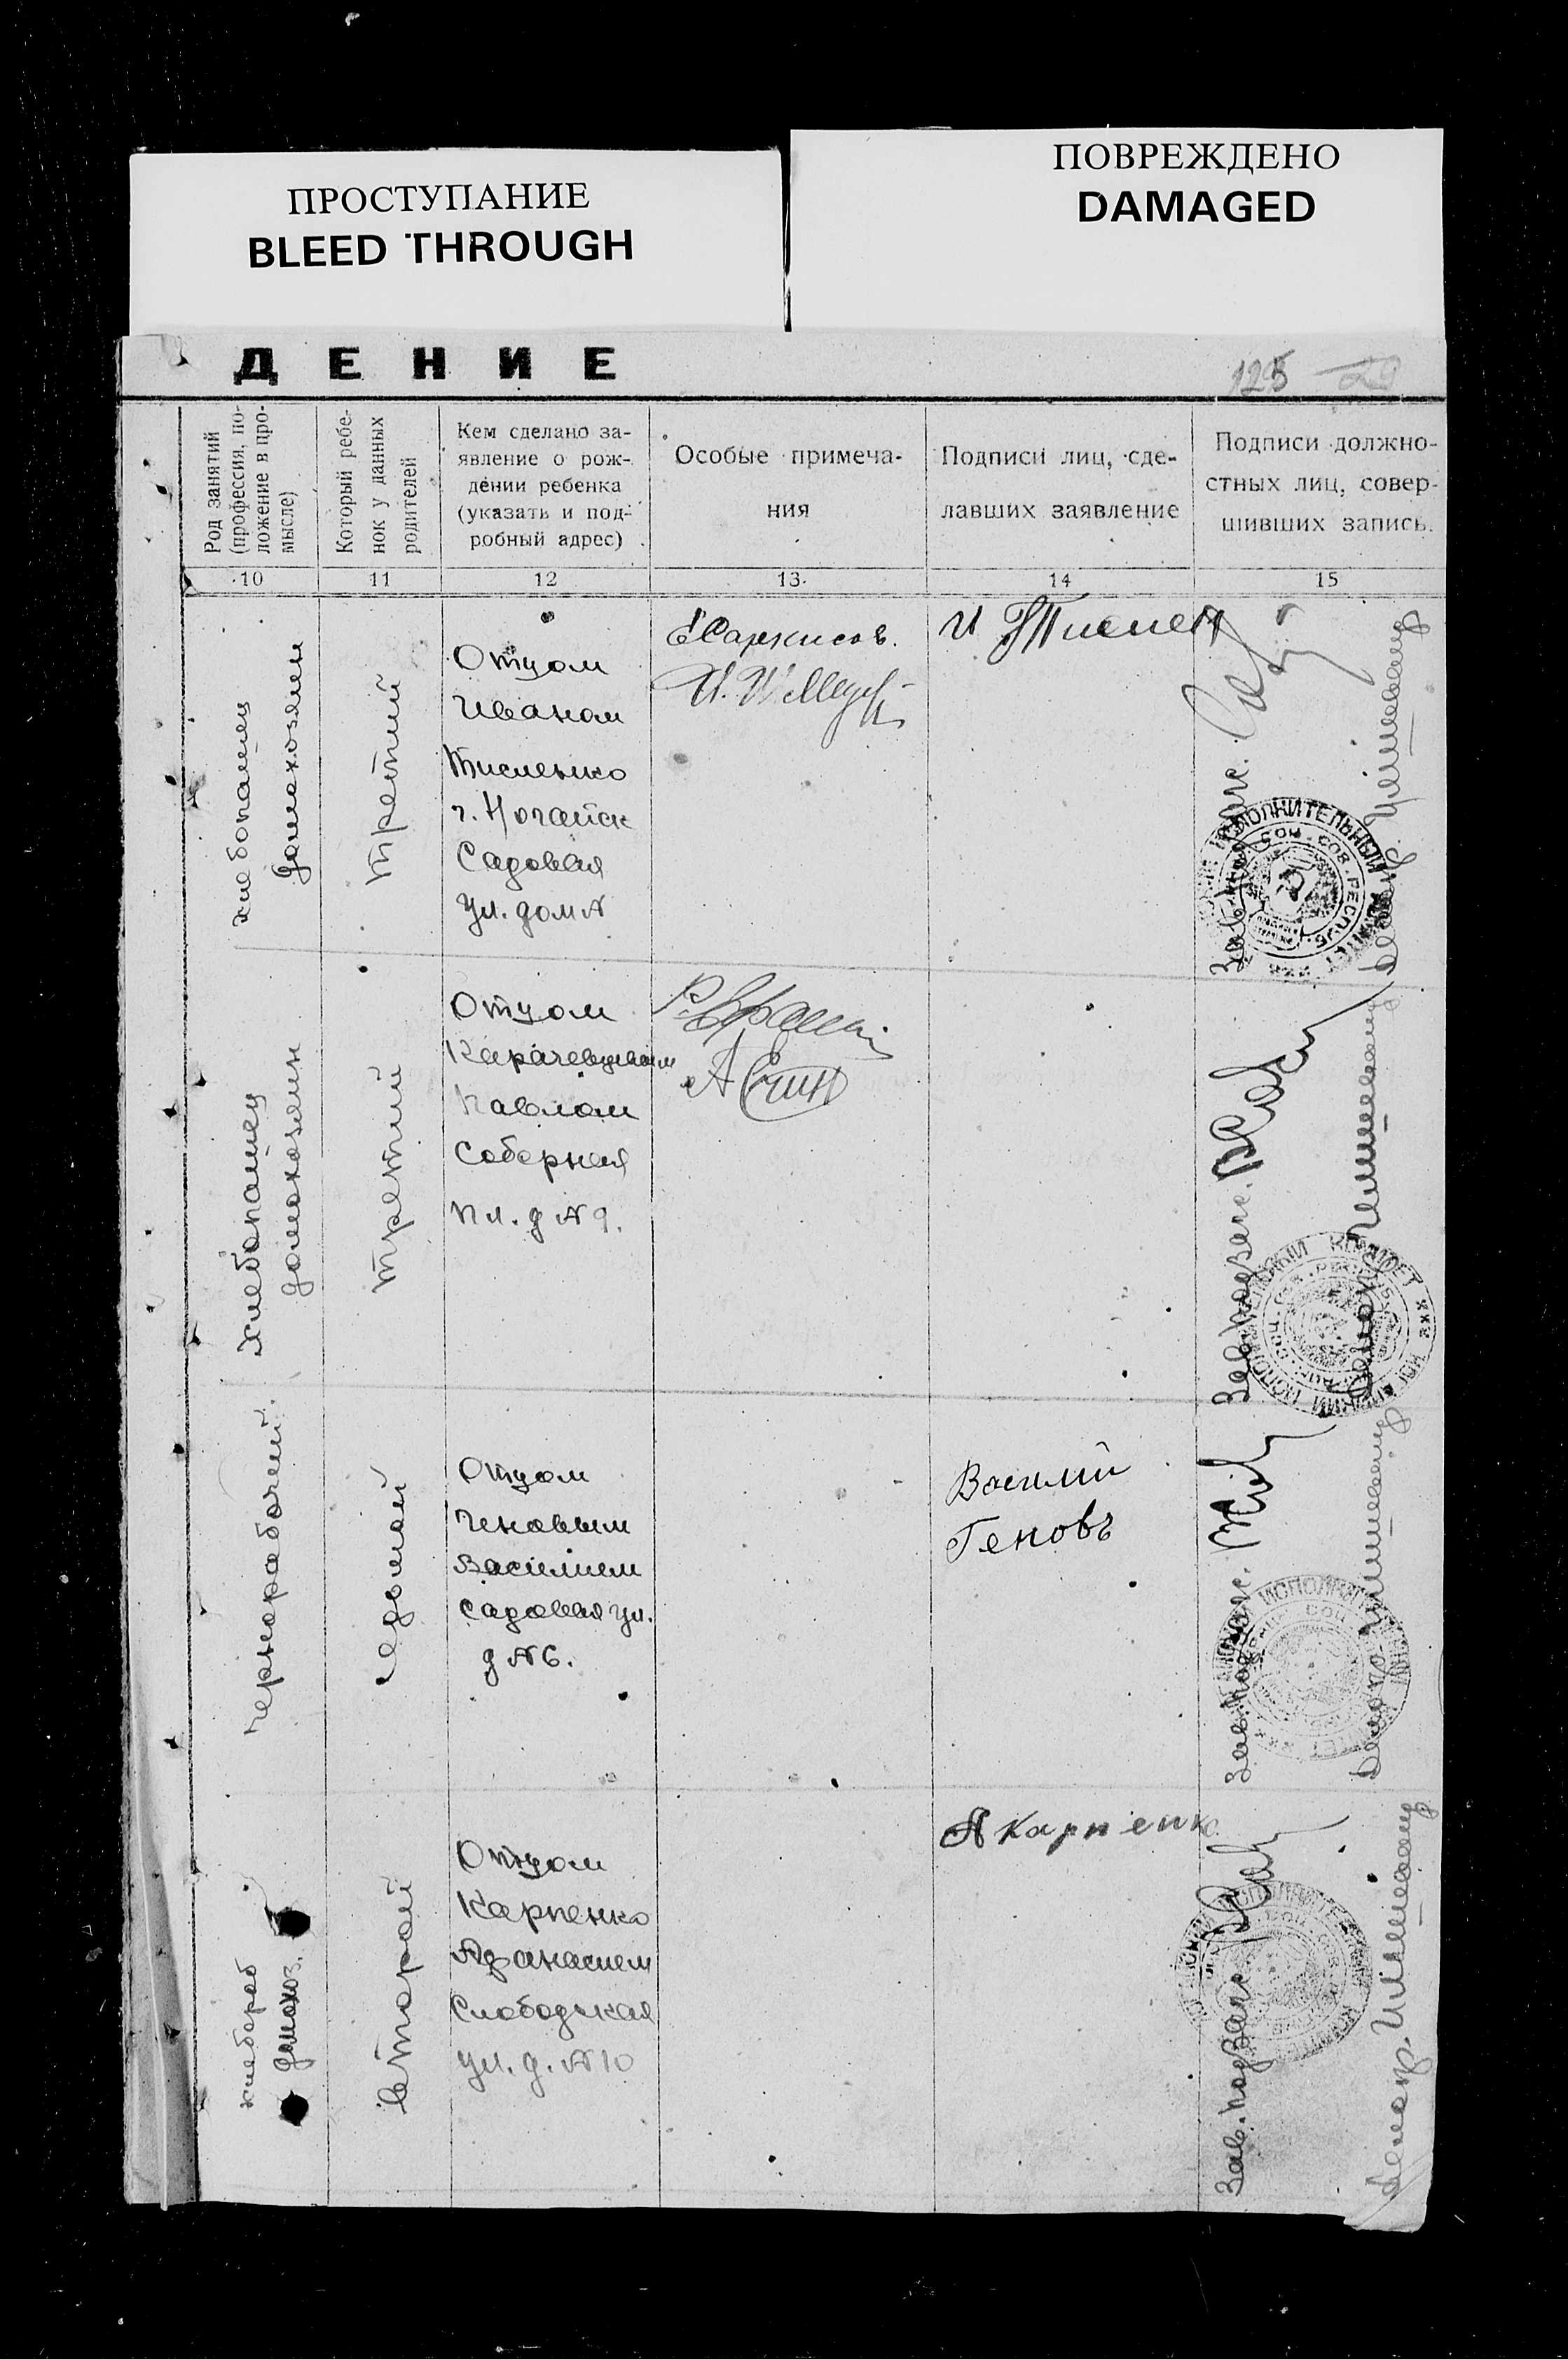 ПРОСТУПАНИЕ
BLEED THROUGH
ПОВРЕЖДЕНО
DAMAGED
ДЕНИЕ
125
Род занятий
(профессия, по-
ложение в про-
мысле)
Который ребе-
нок у данных
родителей
Кем сделано за-
явление о рож-
дении ребенка
(указать и под-
робный адрес)
Особые примеча-
ния
Подписи лиц, сде-
лавших заявление
Подписи должно-
стных лиц, совер-
шивших запись.
10
11
12
13
14
15
хлебопашец
домохозяин
третий
Отцом
Иваном
г. Ногайск
Садовая
ул. дом №
Саркисов.
Зав. подзагс.
Делопр.
хлебопашец
домохозяин
третий
Отцом
Павлом
Соборная
пл. д № 9.
Зав. подзагс.
Делопр.
чернорабочий.
седьмой
Отцом
Геновым
Василием
Садовая ул.
д № 6.
Василий
Геновъ
Зав. подзагс.
Делопр.
хлебороб
домохоз.
второй
Отцом
Карпенко
Афанасием
Слободская
ул. д. № 10
А Карпенко
Зав. подзагс
Делопр.